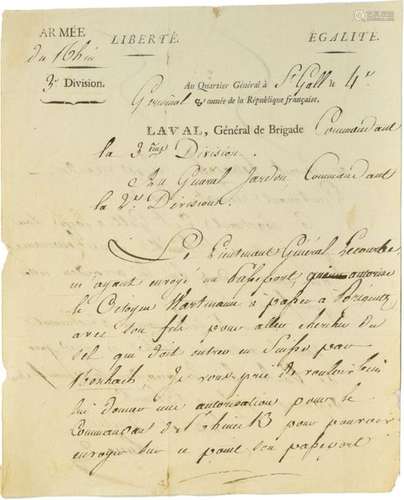 ARMÉE LIBERTÉ. ÉGALITÉ.
du Rhin
3e Division. Au Quartier Général à St Gall le 4
Germinal année de la République française.
LAVAL, Général de Brigade Commandant
la 3eme Division.
Au Général Jardon Commandant
la 2e Division.
Le Lieutenant Général Lecourbe,
m'ayant envoyé un Passeport,
le Citoyen Hartmann à passer à
avec son fils pour aller chercher du
sel qui doit entrer en Suisse par
Roschach je vous prie de vouloir bien
lui donner une autorisation pour le
Commandant de Rhineck pour pouvoir
envoyer sur ce point son passeport.